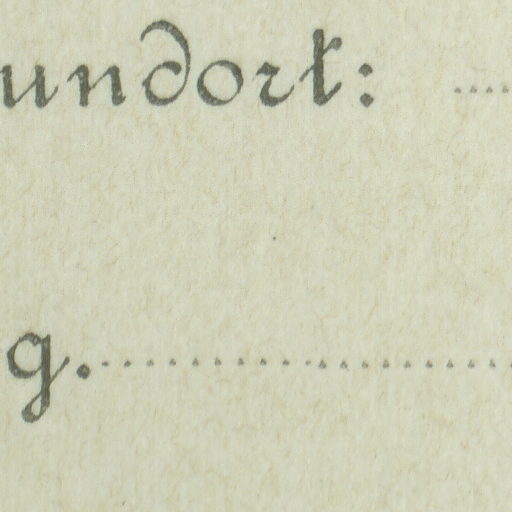 undort:
g.